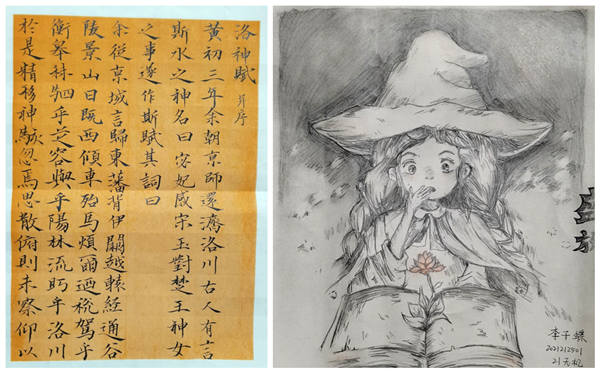 洛神賦 并序
黄初三年余朝京師還濟洛川古人有言
斯水之神名曰宓妃感宋玉對楚王神女
之事遂作斯賦其詞曰
余從京域言歸東藩背伊闕越轅經通谷
陵景山日既西傾車殆馬煩爾迺稅駕乎
衡皋秣駟乎芝容與乎陽林流眄乎洛川
於是精移神駭忽焉思散俯則未察仰以
李子蝶
2021212501
21无机